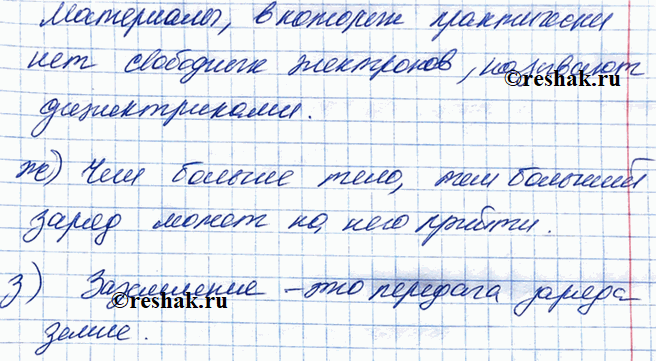 Материалы, в которых практически
нет свободных электронов, называют
©reshak.ru
диэлектриками.
ж) Чем больше тело, тем больший
заряд может на него прийти.
з) Заземление – это передача заряда
©reshak.ru
земле.